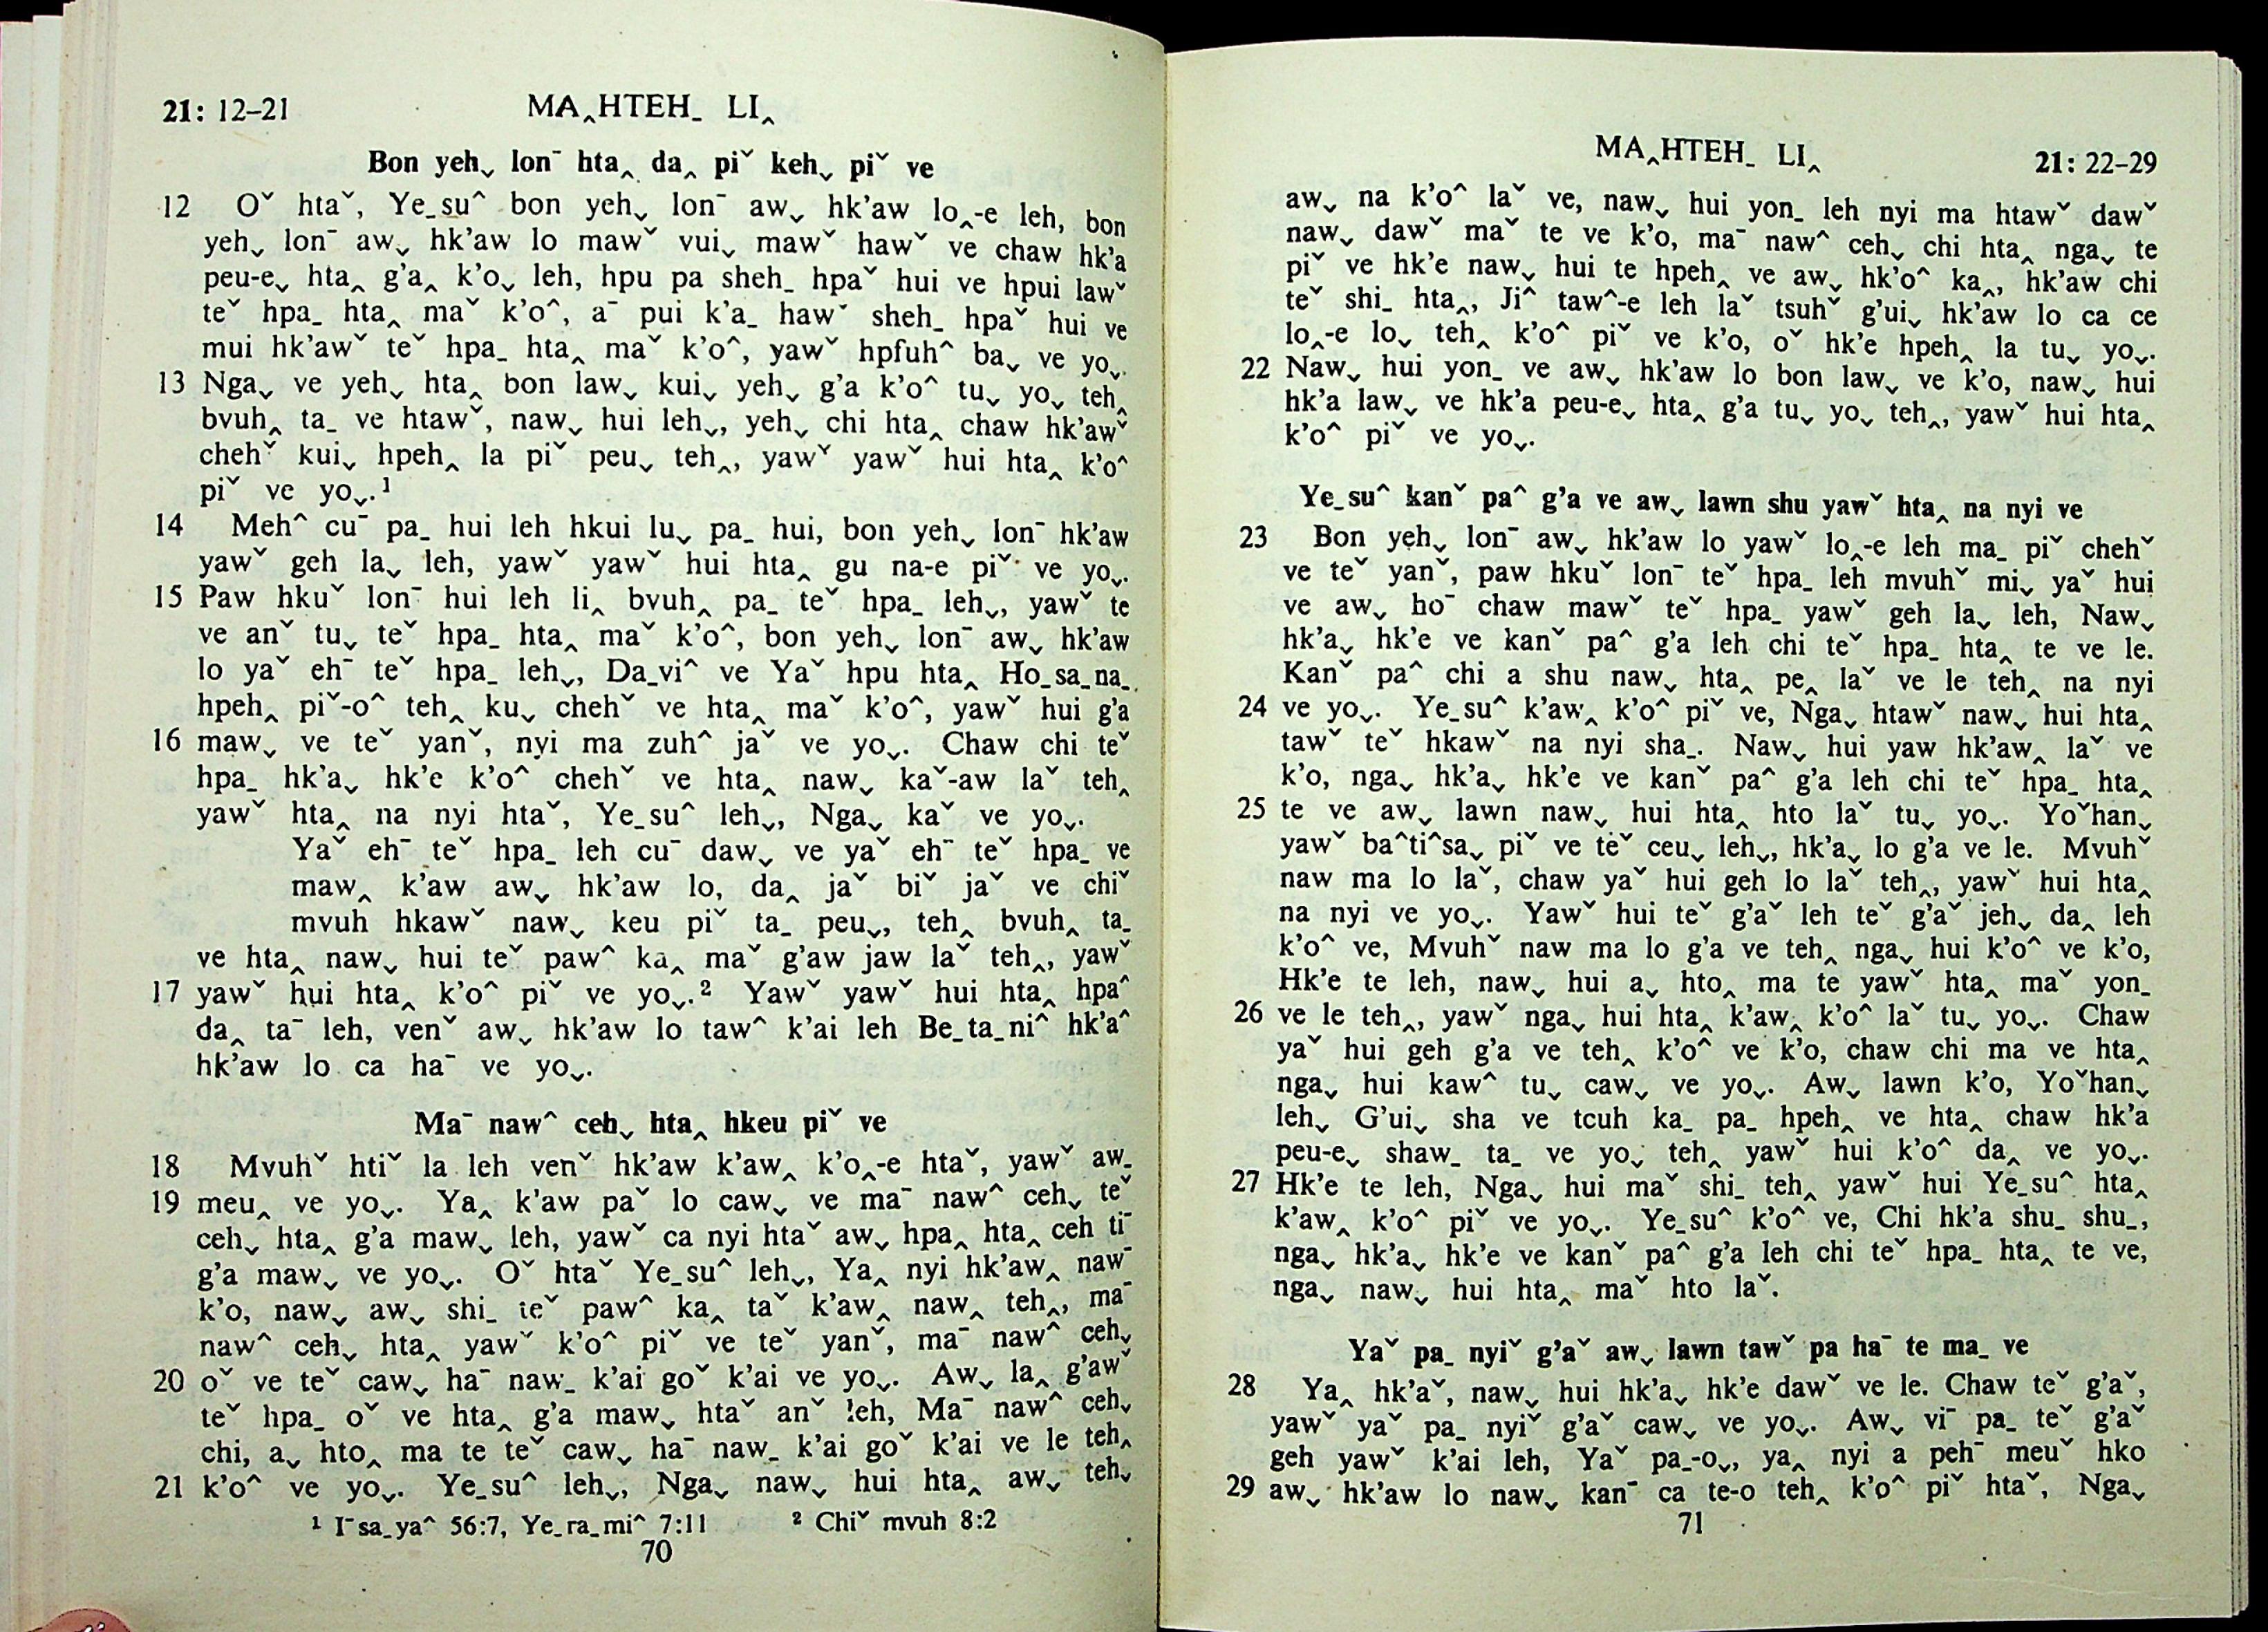 21: 12–21 MA‸HTEH_ LI‸
Bon yeh˯ lon¯ hta‸ da‸ piˇ keh˯ piˇ ve
12 Oˇ htaˇ, Ye_su^ bon yeh˯ lon¯ aw˯ hk'aw lo‸-e leh, bon
yeh˯ lon¯ aw˯ hk'aw lo mawˇ vui˯ mawˇ hawˇ ve chaw hk'a
peu-e˯ hta‸ g'a‸ k'o˯ leh, hpu pa sheh_ hpaˇ hui ve hpui lawˇ
teˇ hpa_ hta‸ maˇ k'o^, a¯ pui k'a_ hawˇ sheh_ hpaˇ hui ve
mui hk'awˇ teˇ hpa_ hta‸ maˇ k'o^, yawˇ hpfuh^ ba˯ ve yo˯.
13 Nga˯ ve yeh˯ hta‸ bon law˯ kui˯ yeh˯ g'a k'o^ tu˯ yo˯ teh‸
bvuh‸ ta_ ve htawˇ, naw˯ hui leh˯, yeh˯ chi hta‸ chaw hk'awˇ
chehˇ kui˯ hpeh‸ la piˇ peu˯ teh‸, yawˇ yawˇ hui hta‸ k'o^
piˇ ve yo˯.¹
14 Meh^ cu¯ pa_ hui leh hkui lu˯ pa_ hui, bon yeh˯ lon¯ hk'aw
yawˇ geh la˯ leh, yawˇ yawˇ hui hta‸ gu na-e piˇ ve yo˯.
15 Paw hkuˇ lon¯ hui leh li‸ bvuh‸ pa_ teˇ hpa_ leh˯, yawˇ te
ve anˇ tu˯ teˇ hpa_ hta‸ maˇ k'o^, bon yeh˯ lon¯ aw˯ hk'aw
lo yaˇ eh¯ teˇ hpa_ leh˯, Da_vi^ ve Yaˇ hpu hta‸ Ho_sa_na_
hpeh‸ piˇ-o^ teh‸ ku˯ chehˇ ve hta‸ maˇ k'o^, yawˇ hui g'a
16 maw˯ ve teˇ yanˇ, nyi ma zuh^ jaˇ ve yo˯. Chaw chi teˇ
hpa_ hk'a˯ hk'e k'o^ chehˇ ve hta‸ naw˯ kaˇ-aw laˇ teh‸
yawˇ hta‸ na nyi htaˇ, Ye_su^ leh˯, Nga˯ kaˇ ve yo˯.
Yaˇ eh¯ teˇ hpa_ leh cu¯ daw˯ ve yaˇ eh¯ teˇ hpa_ ve
maw‸ k'aw aw˯ hk'aw lo, da‸ jaˇ biˇ jaˇ ve chiˇ
mvuh hkawˇ naw˯ keu piˇ ta_ peu˯, teh‸ bvuh‸ ta_
ve hta‸ naw˯ hui teˇ paw^ ka‸ maˇ g'aw jaw laˇ teh‸, yawˇ
17 yawˇ hui hta‸ k'o^ piˇ ve yo˯.² Yawˇ yawˇ hui hta‸ hpa^
da‸ ta¯ leh, venˇ aw˯ hk'aw lo taw^ k'ai leh Be_ta_ni^ hk'a^
hk'aw lo ca ha¯ ve yo˯.
Ma¯ naw^ ceh˯ hta‸ hkeu piˇ ve
18 Mvuhˇ htiˇ la leh venˇ hk'aw k'aw‸ k'o‸-e htaˇ, yawˇ aw_
19 meu‸ ve yo˯. Ya‸ k'aw paˇ lo caw˯ ve ma¯ naw^ ceh˯ teˇ
ceh˯ hta‸ g'a maw˯ leh, yawˇ ca nyi htaˇ aw˯ hpa‸ hta‸ ceh ti¯
g'a maw˯ ve yo˯. Oˇ htaˇ Ye_su^ leh˯, Ya‸ nyi hk'aw‸ naw¯
k'o, naw˯ aw˯ shi_ teˇ paw^ ka‸ taˇ k'aw‸ naw‸ teh‸, ma¯
naw^ ceh˯ hta‸ yawˇ k'o^ piˇ ve teˇ yanˇ, ma¯ naw^ ceh˯
20 oˇ ve teˇ caw˯ ha¯ naw_ k'ai goˇ k'ai ve yo˯. Aw˯ la‸ g'awˇ
teˇ hpa_ oˇ ve hta‸ g'a maw˯ htaˇ anˇ leh, Ma¯ naw^ ceh˯
chi, a˯ hto‸ ma te teˇ caw˯ ha¯ naw_ k'ai goˇ k'ai ve le teh‸
21 k'o^ ve yo˯. Ye_su^ leh˯, Nga˯ naw˯ hui hta‸ aw˯ teh˯
¹ I¯sa_ya^ 56:7, Ye_ra_mi^ 7:11 ² Chiˇ mvuh 8:2
70
MA‸HTEH_ LI‸ 21: 22–29
aw˯ na k'o^ laˇ ve, naw˯ hui yon_ leh nyi ma htawˇ dawˇ
naw˯ dawˇ maˇ te ve k'o, ma¯ naw^ ceh˯ chi hta‸ nga˯ te
piˇ ve hk'e naw˯ hui te hpeh‸ ve aw˯ hk'o^ ka‸, hk'aw chi
teˇ shi_ hta‸, Ji^ taw^-e leh laˇ tsuhˇ g'ui˯ hk'aw lo ca ce
lo‸-e lo˯ teh‸ k'o^ piˇ ve k'o, oˇ hk'e hpeh‸ la tu˯ yo˯.
22 Naw˯ hui yon_ ve aw˯ hk'aw lo bon law˯ ve k'o, naw˯ hui
hk'a law˯ ve hk'a peu-e˯ hta‸ g'a tu˯ yo˯ teh‸, yawˇ hui hta‸
k'o^ piˇ ve yo˯.
Ye_su^ kanˇ pa^ g'a ve aw˯ lawn shu yawˇ hta‸ na nyi ve
23 Bon yeh˯ lon¯ aw˯ hk'aw lo yawˇ lo‸-e leh ma_ piˇ chehˇ
ve teˇ yanˇ, paw hkuˇ lon¯ teˇ hpa_ leh mvuhˇ mi˯ yaˇ hui
ve aw˯ ho¯ chaw mawˇ teˇ hpa_ yawˇ geh la˯ leh, Naw˯
hk'a˯ hk'e ve kanˇ pa^ g'a leh chi teˇ hpa_ hta‸ te ve le.
Kanˇ pa^ chi a shu naw˯ hta‸ pe‸ laˇ ve le teh‸ na nyi
24 ve yo˯. Ye_su^ k'aw‸ k'o^ piˇ ve, Nga˯ htawˇ naw˯ hui hta‸
tawˇ teˇ hkawˇ na nyi sha_. Naw˯ hui yaw hk'aw‸ laˇ ve
k'o, nga˯ hk'a˯ hk'e ve kanˇ pa^ g'a leh chi teˇ hpa_ hta‸
25 te ve aw˯ lawn naw˯ hui hta‸ hto laˇ tu˯ yo˯. Yoˇhan˯
yawˇ ba^ti^sa˯ piˇ ve teˇ ceu˯ leh˯, hk'a˯ lo g'a ve le. Mvuhˇ
naw ma lo laˇ, chaw yaˇ hui geh lo laˇ teh‸, yawˇ hui hta‸
na nyi ve yo˯. Yawˇ hui teˇ g'aˇ leh teˇ g'aˇ jeh˯ da‸ leh
k'o^ ve, Mvuhˇ naw ma lo g'a ve teh‸ nga˯ hui k'o^ ve k'o,
Hk'e te leh, naw˯ hui a˯ hto‸ ma te yawˇ hta‸ maˇ yon_
26 ve le teh‸, yawˇ nga˯ hui hta‸ k'aw‸ k'o^ laˇ tu˯ yo˯. Chaw
yaˇ hui geh g'a ve teh‸ k'o^ ve k'o, chaw chi ma ve hta‸
nga˯ hui kaw^ tu˯ caw˯ ve yo˯. Aw˯ lawn k'o, Yoˇhan˯
leh˯ G'ui˯ sha ve tcuh ka_ pa_ hpeh‸ ve hta‸ chaw hk'a
peu-e˯ shaw_ ta_ ve yo˯ teh‸ yawˇ hui k'o^ da‸ ve yo˯.
27 Hk'e te leh, Nga˯ hui maˇ shi_ teh‸ yawˇ hui Ye_su^ hta‸
k'aw‸ k'o^ piˇ ve yo˯. Ye_su^ k'o^ ve, Chi hk'a shu_ shu_,
nga˯ hk'a˯ hk'e ve kanˇ pa^ g'a leh chi teˇ hpa_ hta‸ te ve,
nga˯ naw˯ hui hta‸ maˇ hto laˇ.
Yaˇ pa_ nyiˇ g'aˇ aw˯ lawn tawˇ pa ha¯ te ma_ ve
28 Ya‸ hk'aˇ, naw˯ hui hk'a˯ hk'e dawˇ ve le. Chaw teˇ g'aˇ,
yawˇ yaˇ pa_ nyiˇ g'aˇ caw˯ ve yo˯. Aw˯ vi¯ pa_ teˇ g'aˇ
geh yawˇ k'ai leh, Yaˇ pa_-o˯, ya‸ nyi a peh¯ meuˇ hko
29 aw˯ hk'aw lo naw˯ kan¯ ca te-o teh‸ k'o^ piˇ htaˇ, Nga˯
71